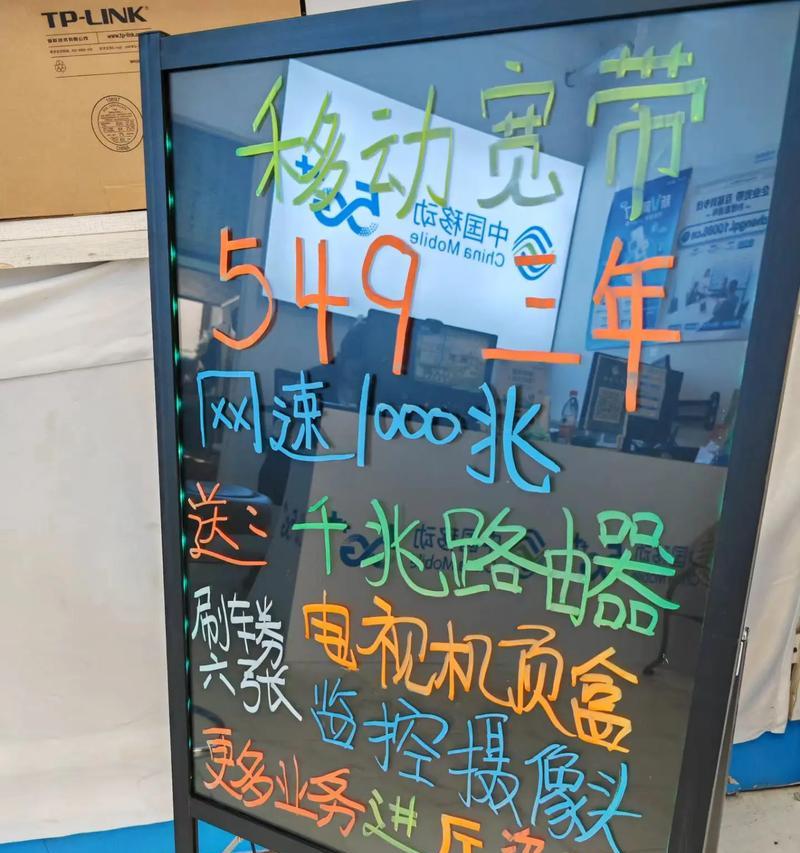 TP-LINK
移动宽带
549 三年
网速1000兆
送: 千兆路由器
刷车券 电视机顶盒
六张 监控摄像头
更多业务进厅
中国移动
China Mobile
5G